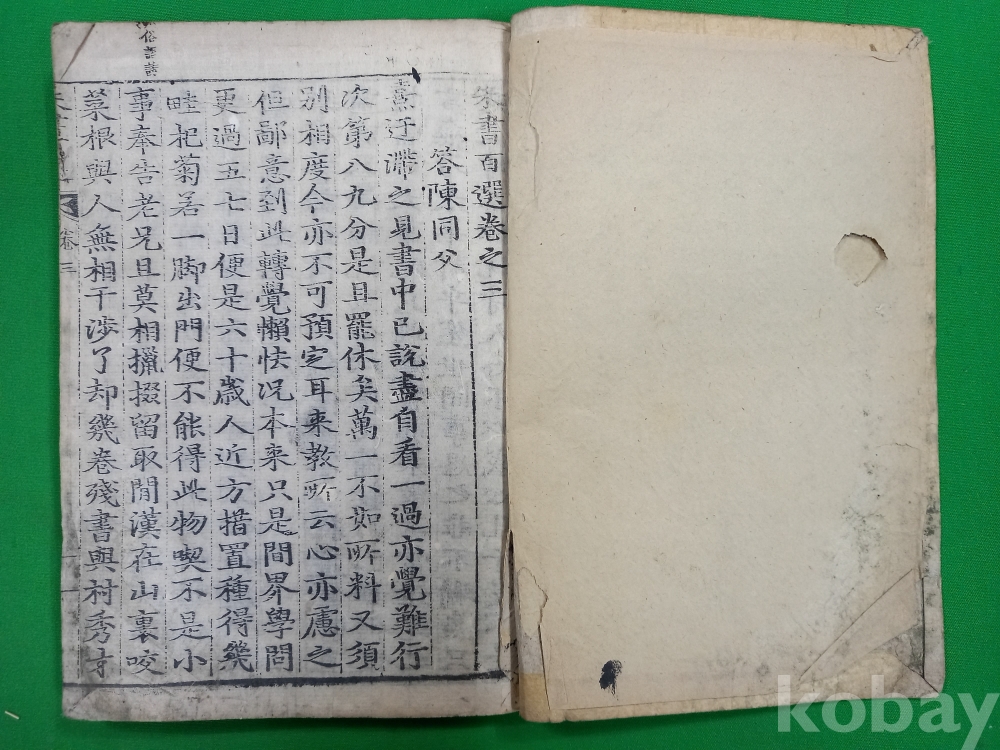 朱書百選卷之三
答陳同父
熹迂滯之見書中已說盡自看一過亦覺難行
次第八九分是且罷休矣萬一不如所料又須
別相度今亦不可預定耳来教所云心亦慮之
但鄙意到此轉覺懶怯况本来只是間界學問
更過五七日便是六十歲人近方措置種得幾
畦杞菊若一脚出門便不能得此物喫不是小
事奉告老兄且莫相攛掇留取閒漢在山裏咬
菜根與人無相干涉了却幾卷殘書與村秀才
卷三
kobay